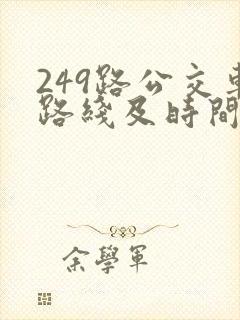 249路公交車
路綫及時間
余學軍